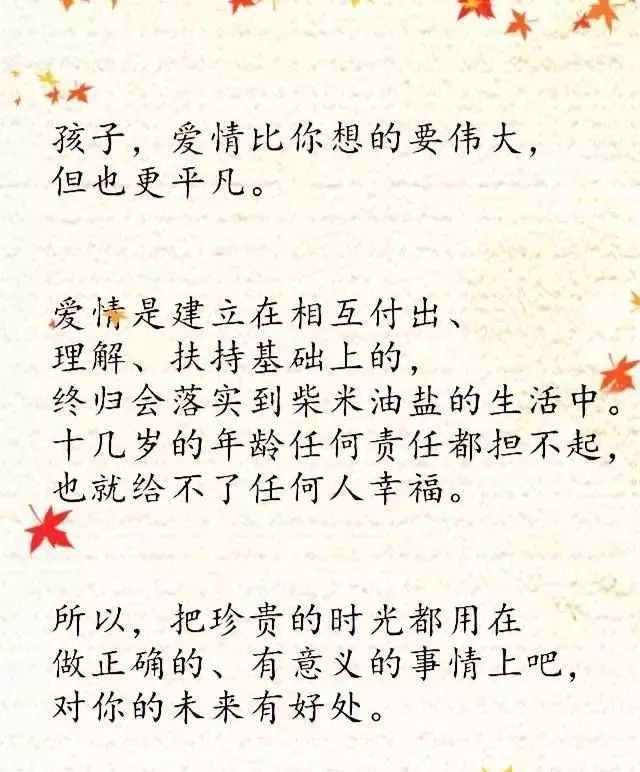 孩子，爱情比你想的要伟大，
但也更平凡。
爱情是建立在相互付出、
理解、扶持基础上的，
终归会落实到柴米油盐的生活中。
十几岁的年龄任何责任都担不起，
也就给不了任何人幸福。
所以，把珍贵的时光都用在
做正确的、有意义的事情上吧，
对你的未来有好处。